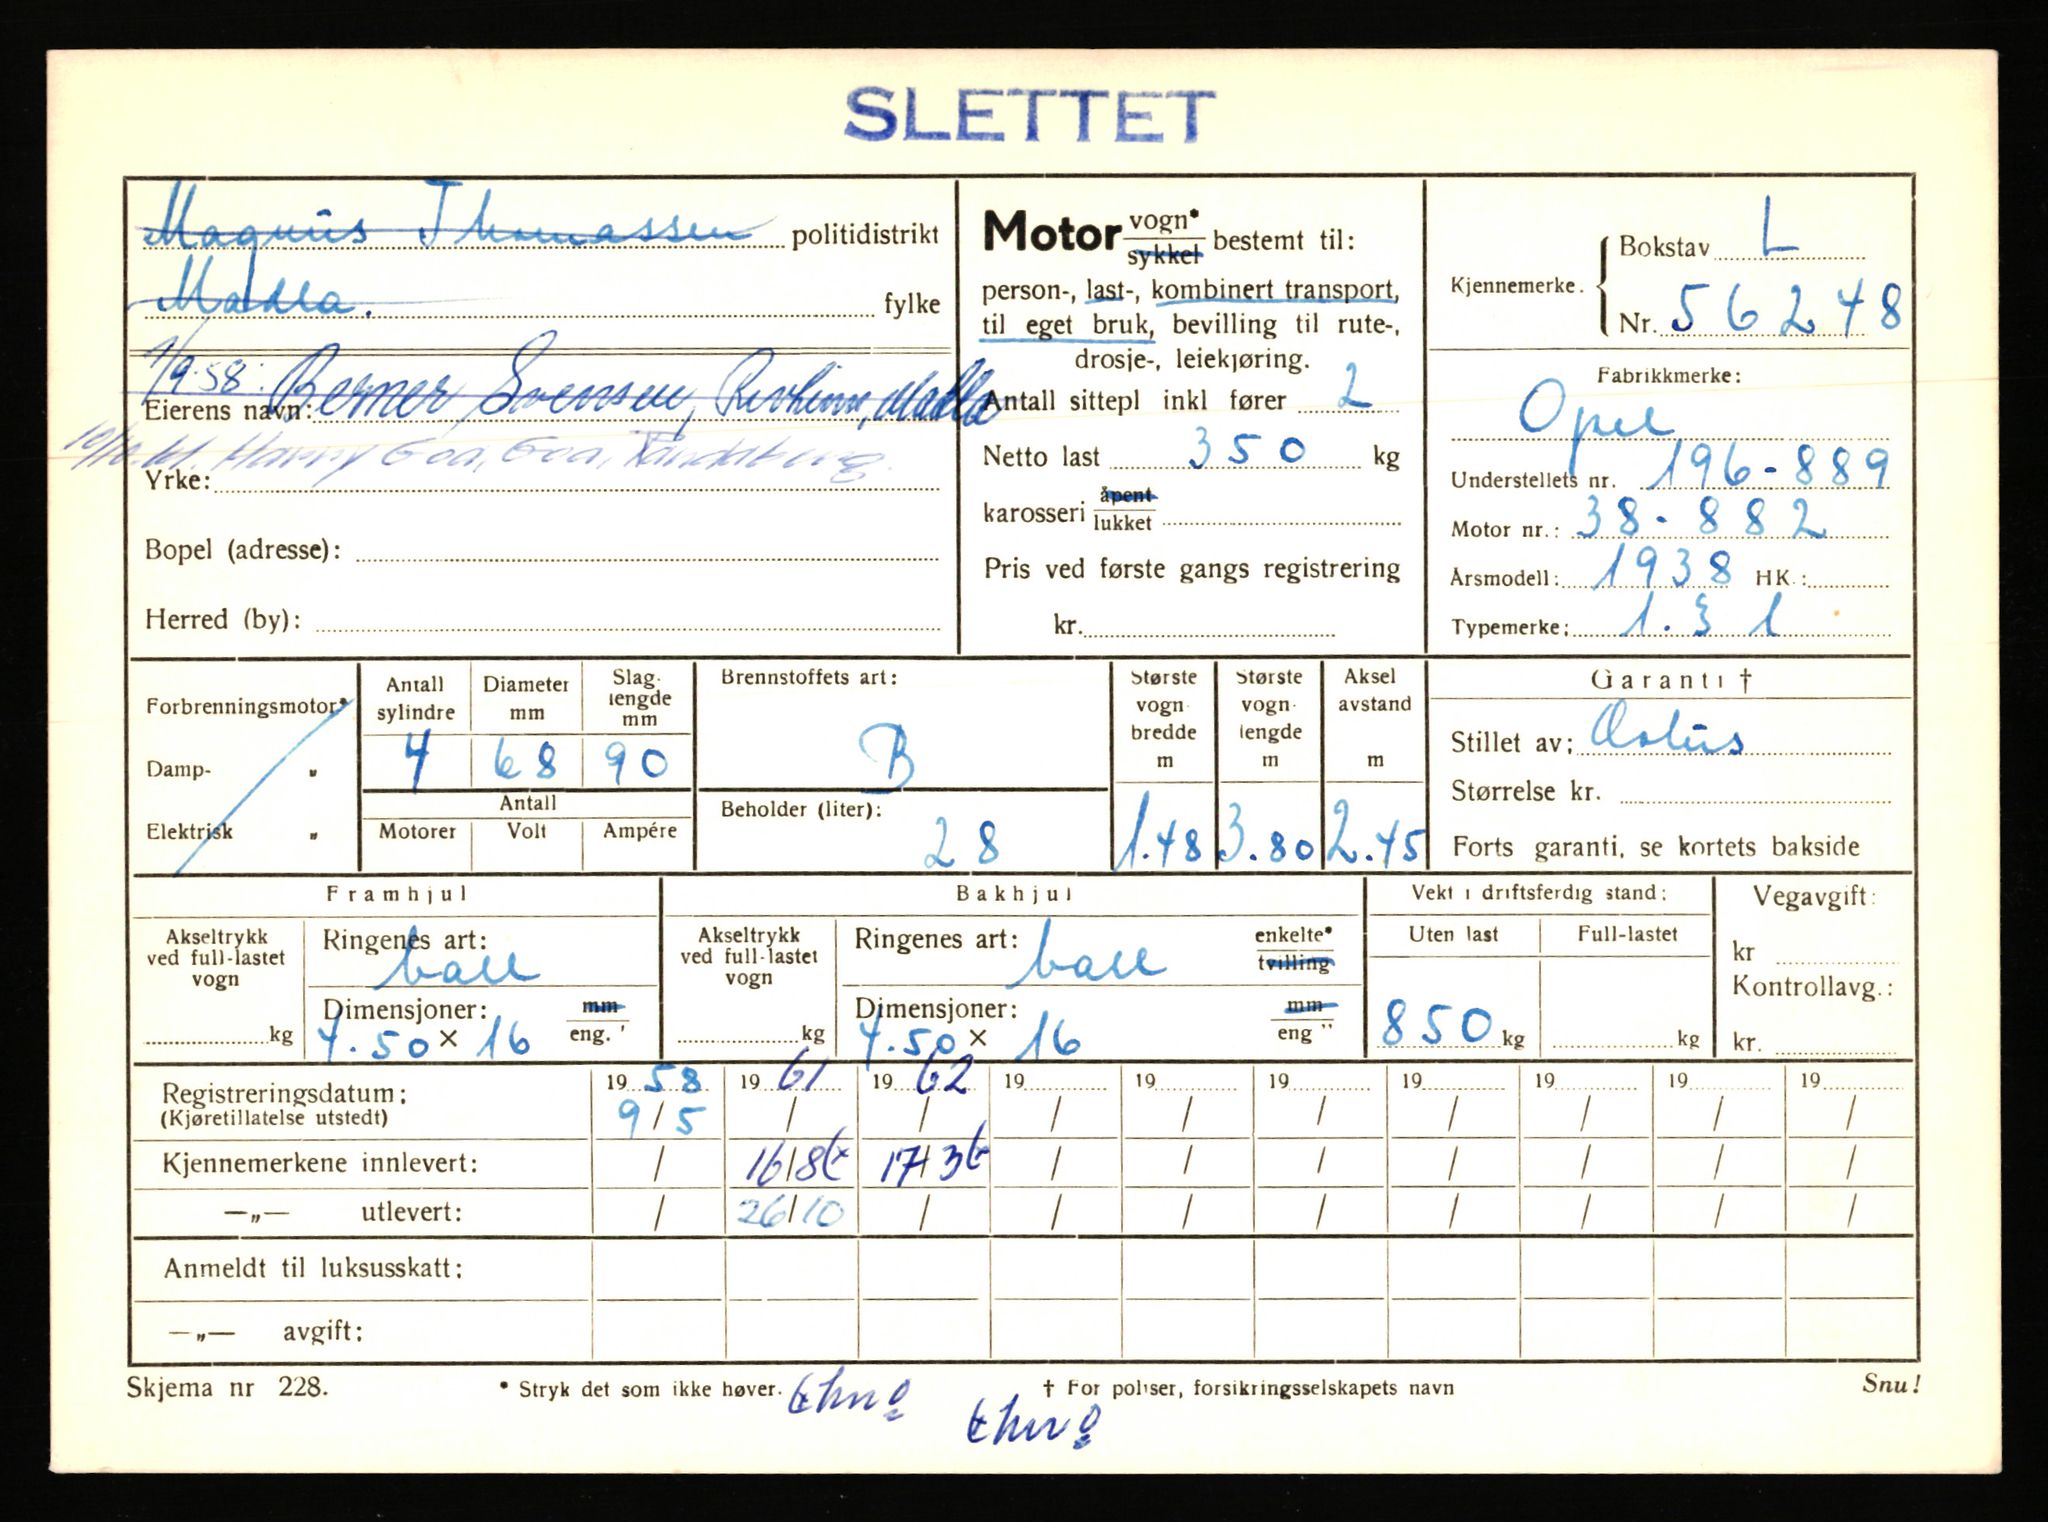 SLETTET
Magnus Thomassen politidistrikt
Madla. fylke
1/9-58: Berner Svensen, Revheim, Madla
Eierens navn:
10/10.61. Harry Goa, Goa, Randaberg.
Yrke:
Bopel (adresse):
Herred (by):
Motor vogn* / sykkel bestemt til:
person-, last-, kombinert transport,
til eget bruk, bevilling til rute-,
drosje-, leiekjøring.
Antall sittepl inkl fører 2
Netto last 350 kg
karosseri åpent / lukket
Pris ved første gangs registrering
kr.
Kjennemerke. Bokstav L
Nr. 56248
Fabrikkmerke:
Opel
Understellets nr. 196-889
Motor nr.: 38-882
Årsmodell: 1938 HK.:
Typemerke: 1.3 l
Forbrenningsmotor*
Damp- "
Elektrisk "
Antall sylindre Diameter mm Slaglengde mm
4 68 90
Antall
Motorer Volt Ampére
Brennstoffets art:
B
Beholder (liter):
28
Største vognbredde m
1.48
Største vognlengde m
3.80
Akselavstand m
2.45
Garanti †
Stillet av:
Størrelse kr.
Forts garanti, se kortets bakside
Framhjul
Akseltrykk ved full-lastet vogn
kg
Ringenes art:
ball
Dimensjoner: mm / eng.'
4.50 × 16
Bakhjul
Akseltrykk ved full-lastet vogn
kg
Ringenes art: enkelte* / tvilling
ball
Dimensjoner: mm / eng "
4.50 × 16
Vekt i driftsferdig stand:
Uten last Full-lastet
850 kg kg
Vegavgift:
kr
Kontrollavg.:
kr.
Registreringsdatum: 19 58 19 61 19 62 19 19 19 19 19 19 19
(Kjøretillatelse utstedt) 9/5 / / / / / / / / /
Kjennemerkene innlevert: / 16/8 17/3 / / / / / / /
—„— utlevert: / 26/10 / / / / / / / /
Anmeldt til luksusskatt:
—„— avgift:
Skjema nr 228. * Stryk det som ikke høver. † For poliser, forsikringsselskapets navn Snu!